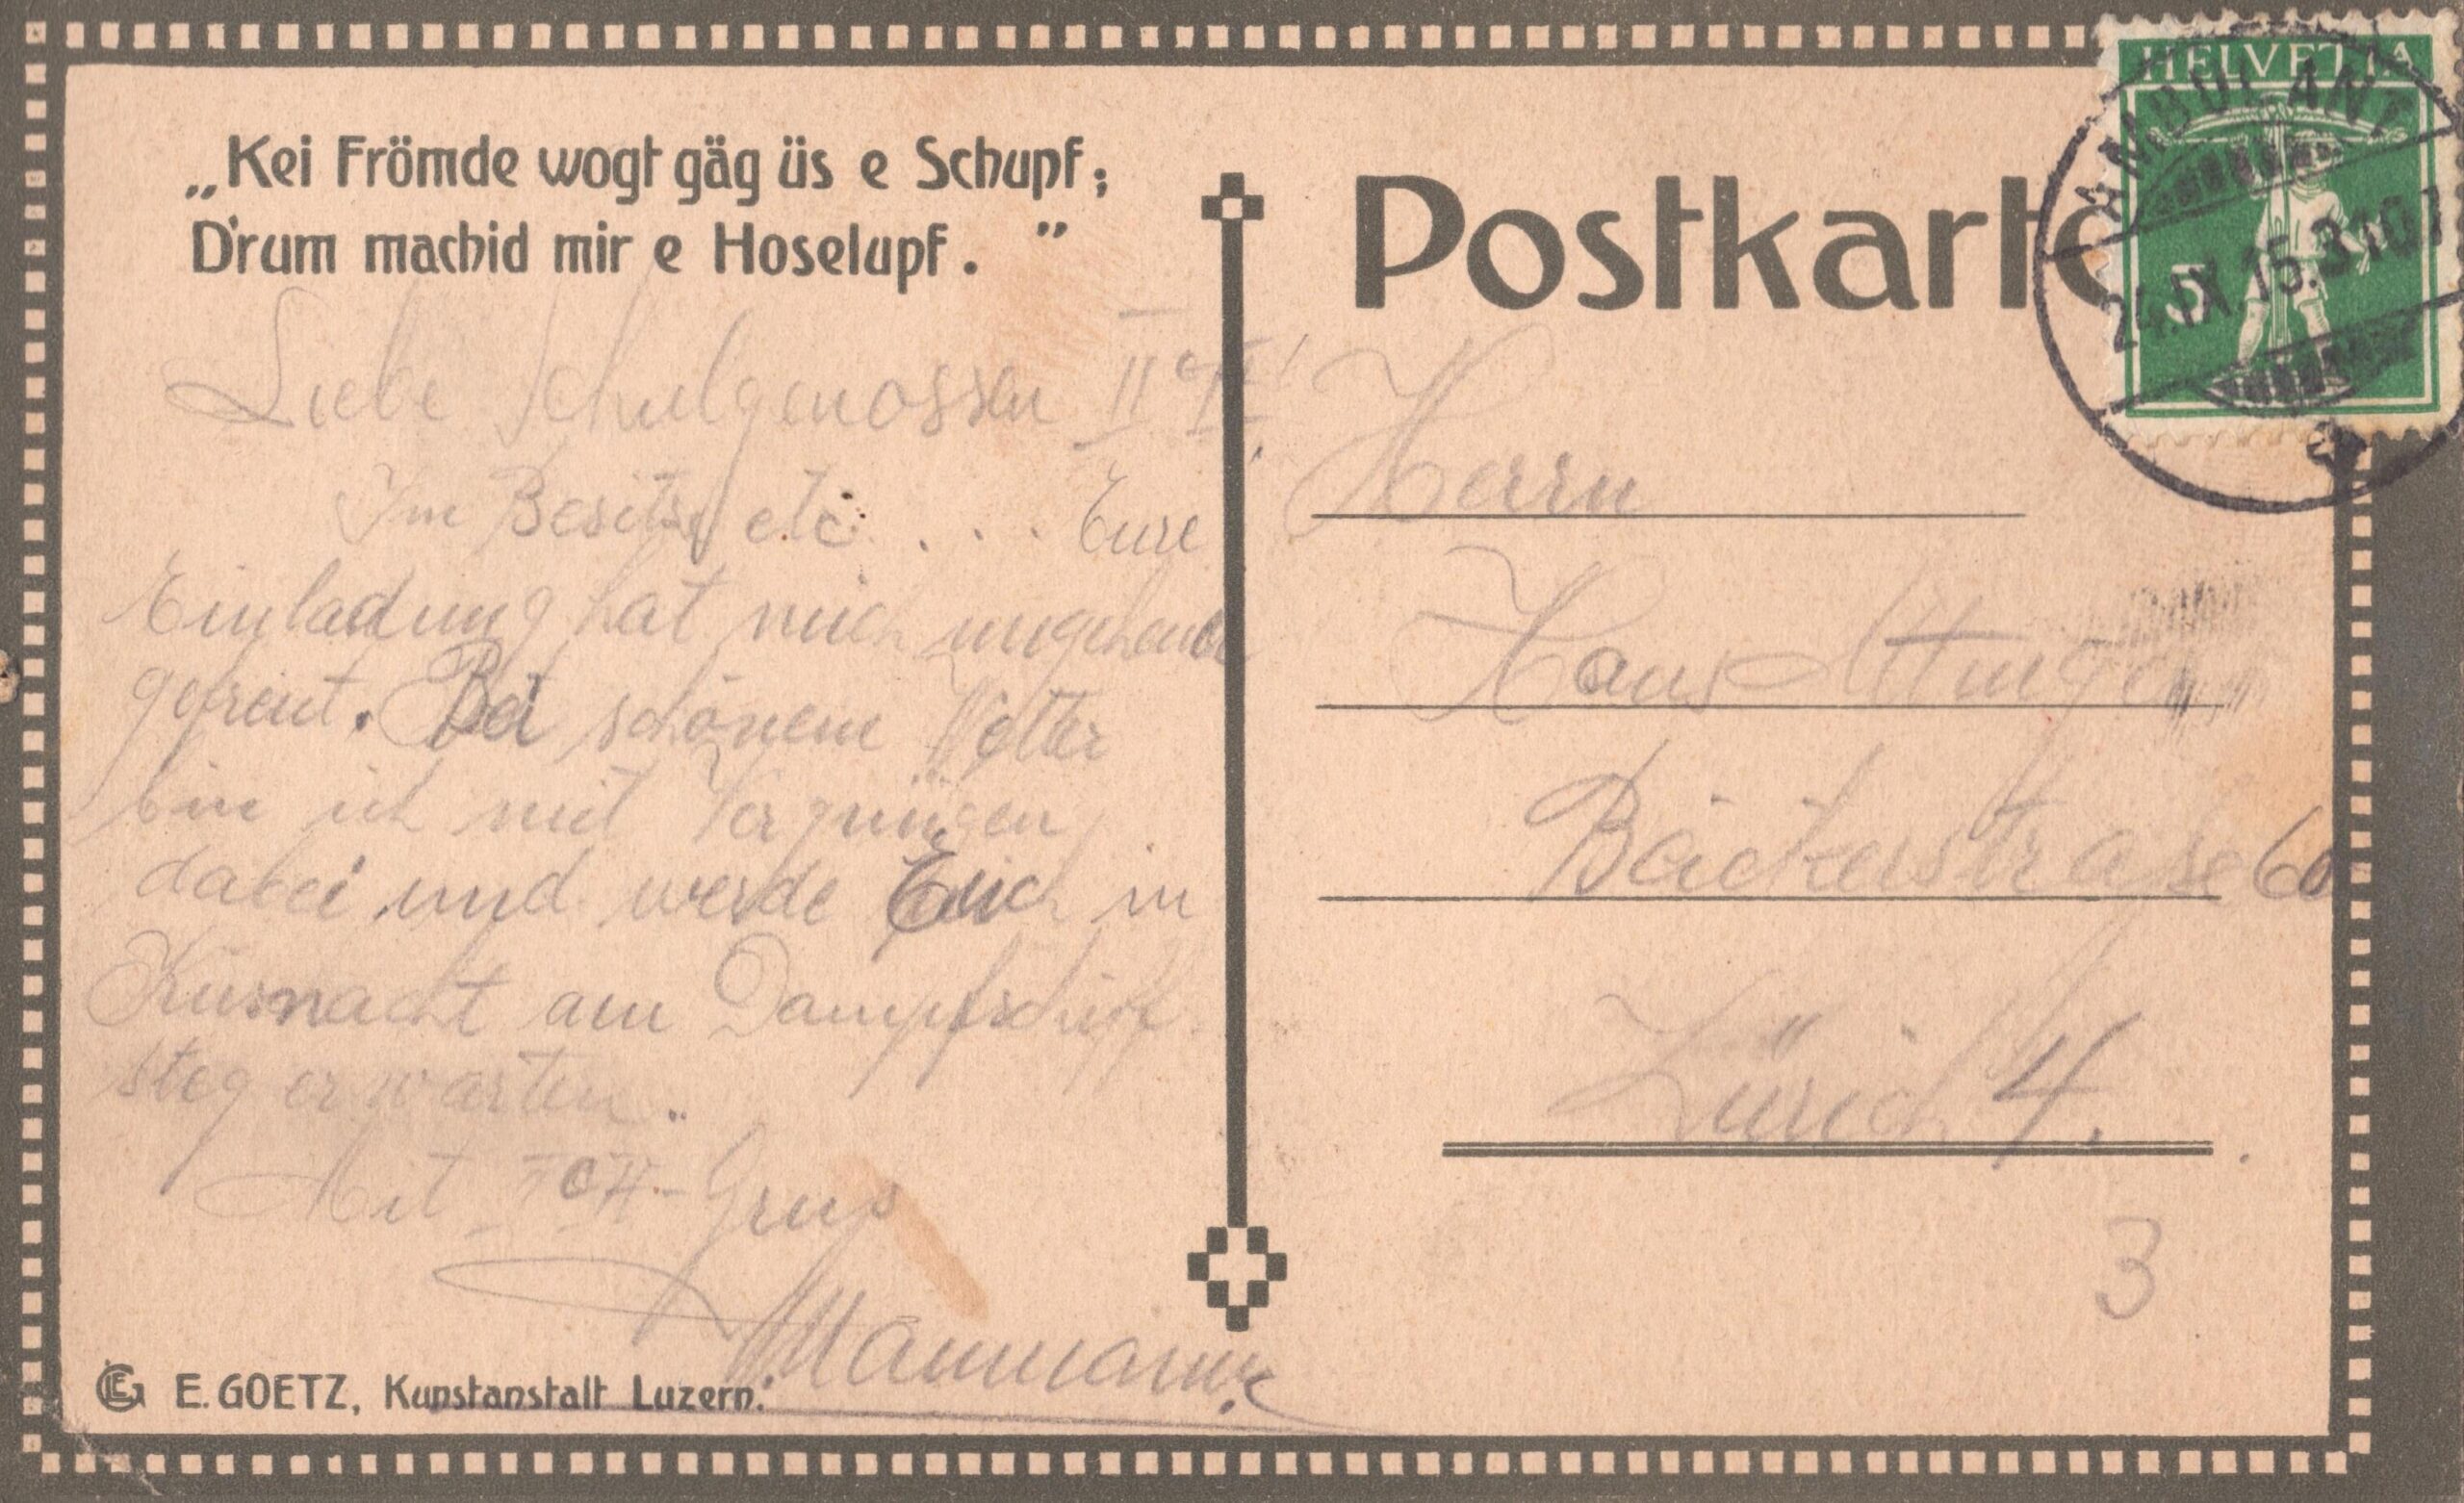 „Kei Frömde wogt gäg üs e Schupf;
D'rum machid mir e Hoselupf. "
Liebe Schulgenossen II c
Im Besitze etc. . . . Eure
Einladung hat mich ungeheuer
gefreut. Bei schönem Wetter
bin ich mit Vergnügen
dabei und werde Euch in
Küsnacht am Dampfschiff
steg erwarten.
Mit -Gruß
E. GOETZ, Kunstanstalt Luzern.
Postkarte
HELVETIA
5
AMBULANT
24.IX.15.
Herrn
Hans
Bäckerstraße 60
Zürich 4.
3